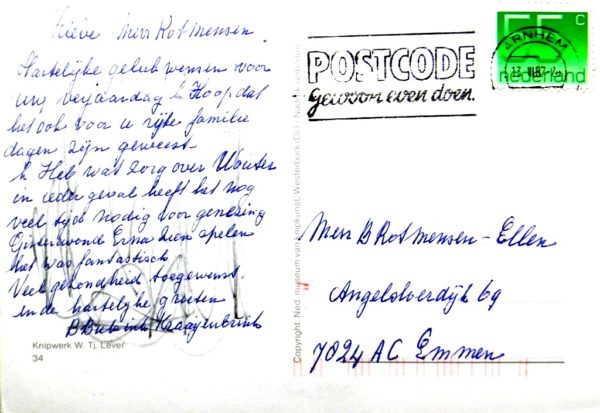 Lieve Mevr Rotmensen
Hartelijke gelukwensen voor
uw verjaardag Ik Hoop dat
het ook voor u rijke familie
dagen zijn geweest
Ik Heb wat zorg over Wouter
in ieder geval heeft het nog
veel tijd nodig voor genezing
Gisteravond Erna zien spelen
het was fantastisch
Veel gezondheid toegewenst.
en de hartelijke groeten
Kraayenbrink
Knipwerk W. Tj. Lever
34
Copyright: Ned. museum van knipkunst, Westerbork (Dr.)
POSTCODE
Gewoon even doen.
ARNHEM
55 C
nederland
Mevr B Rotmensen-Ellen
Angelsloerdijk 69
7824 AC Emmen